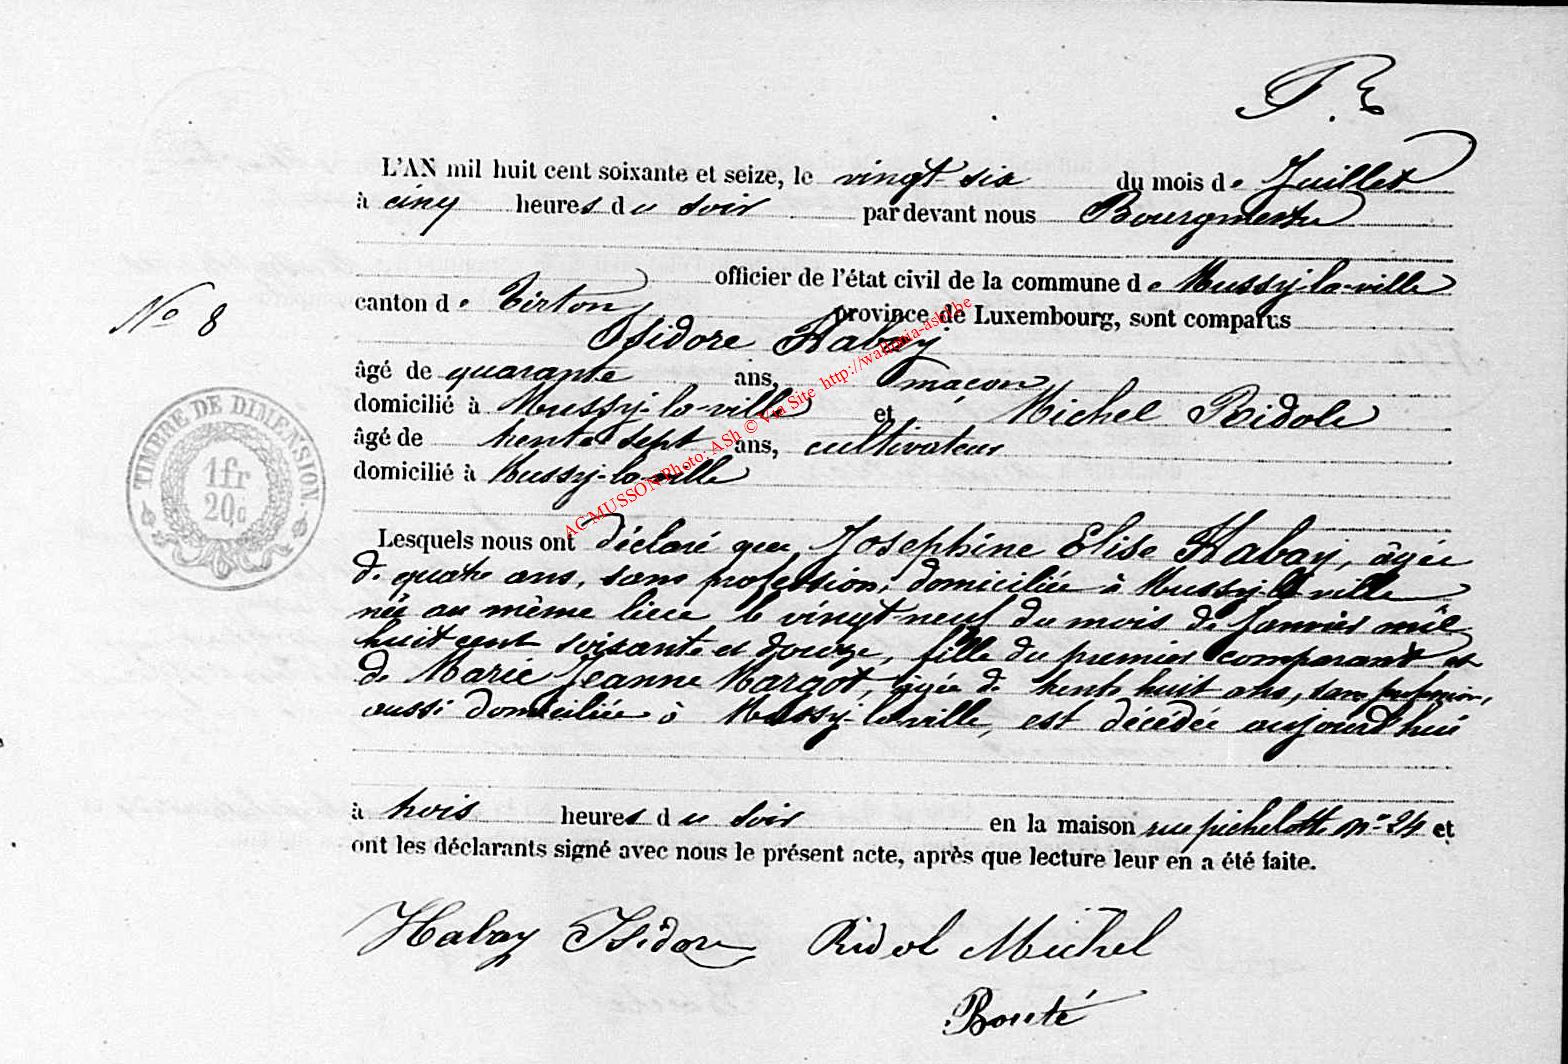 L'AN mil huit cent soixante et seize, le vingt-six du mois de Juillet
à cinq heures du soir par devant nous Bourgmestre
officier de l'état civil de la commune de Mussy-la-ville
canton de Virton province de Luxembourg, sont comparus
No 8
Isidore Habay
âgé de quarante ans, maçon
domicilié à Mussy-la-ville et Michel Ridole
âgé de trente sept ans, cultivateur
domicilié à Mussy-la-ville
TIMBRE DE DIMENSION.
1fr
20c
AC MUSSON Photo: ASh © Via Site http://wallonia-asbl.be
Lesquels nous ont déclaré que Josephine Elise Habay, âgée
de quatre ans, sans profession, domiciliée à Mussy-la ville
née au même lieu le vingt-neuf du mois de Janvier mil
huit cent soixante et douze, fille du premier comparant et
de Marie Jeanne Margot, âgée de trente huit ans, sans profession,
aussi domiciliée à Mussy-la-ville, est décédée aujourd'hui
à trois heures du soir en la maison rue pichelotte no 24 et
ont les déclarants signé avec nous le présent acte, après que lecture leur en a été faite.
Habay Isidore Ridol Michel
Bouté